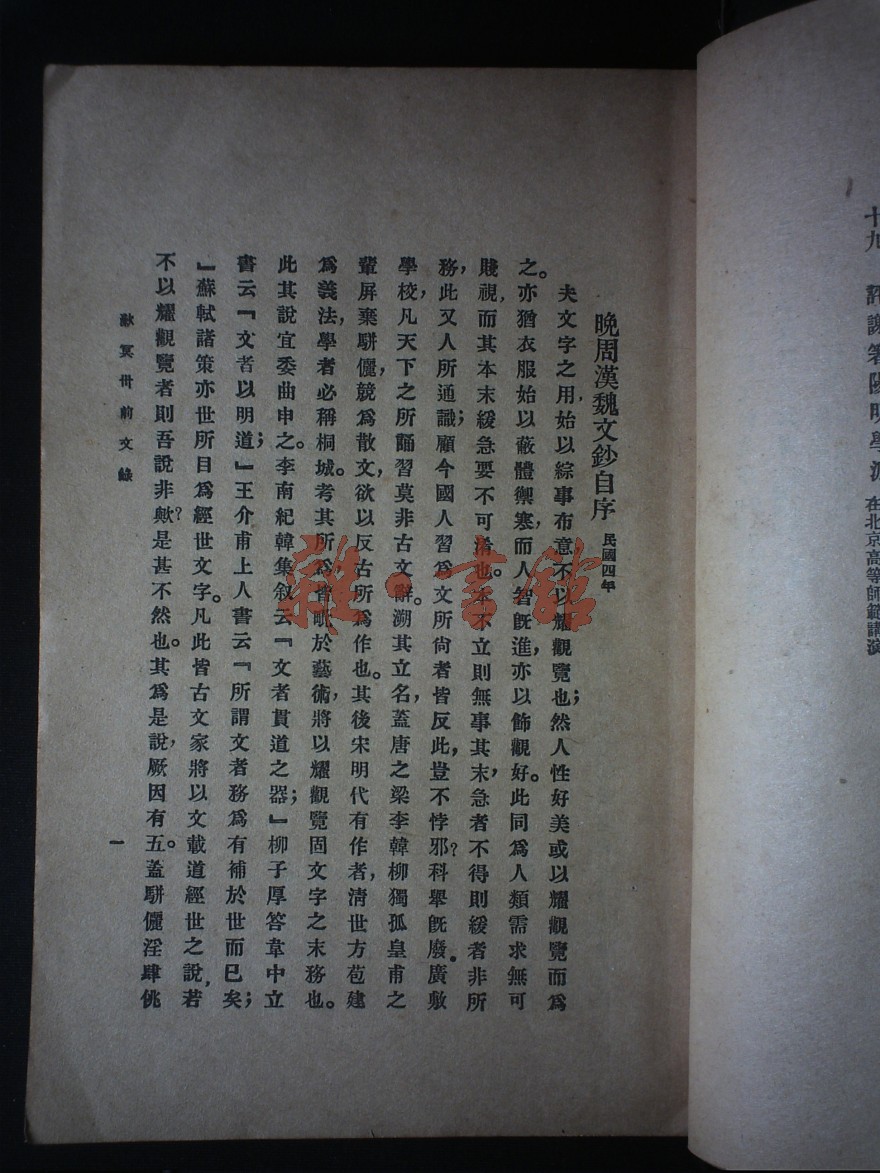 十九　評謝著陽明學派 在北京高等師範講演
晚周漢魏文鈔自序 民國四年
夫文字之用始以綜事布意不以耀觀覽也；然人性好美或以耀觀覽而為
之。亦猶衣服始以蔽體禦寒，而人智旣進，亦以飾觀好。此同為人類需求無可
賤視，而其本末緩急要不可淆也。本不立則無事其末，急者不得則緩者非所
務，此又人所通識；顧今國人習為文所尙者皆反此，豈不悖邪？科舉旣廢。廣敷
學校，凡天下之所誦習莫非古文辭。溯其立名，蓋唐之梁李韓柳獨孤皇甫之
輩屏棄駢儷，競為散文，欲以反古所為作也。其後宋明代有作者，清世方苞建
為義法，學者必稱桐城。考其所為，皆畍於藝術，將以耀觀覽固文字之末務也。
此其說宜委曲申之。李南紀韓集叙云『文者貫道之器；』柳子厚答韋中立
書云『文者以明道；』王介甫上人書云『所謂文者務為有補於世而已矣；
』蘇軾諸策亦世所目為經世文字。凡此皆古文家將以文載道經世之說，若
不以耀觀覽者則吾說非歟？是甚不然也。其為是說，厥因有五。蓋駢儷淫肆佻
冥丗前文錄
一
雜·書館